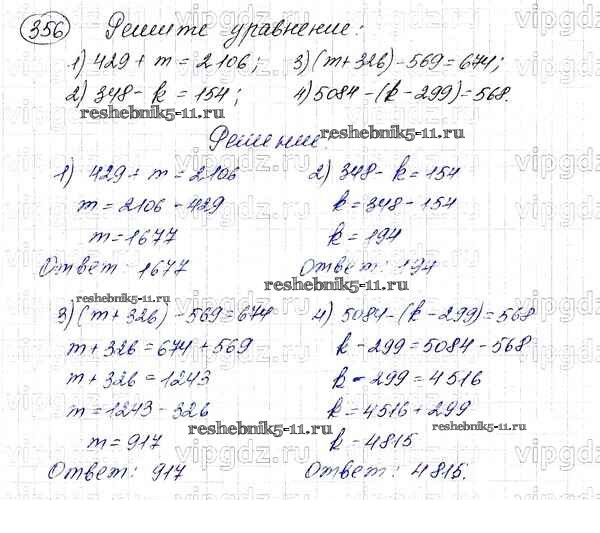 356 Решите уравнение:
1) 429 + m = 2106; 3) (m + 326) - 569 = 674;
2) 348 - k = 154; 4) 5084 - (k - 299) = 568.
reshebnik5-11.ru reshebnik5-11.ru
Решение.
1) 429 + m = 2106 2) 348 - k = 154
m = 2106 - 429 k = 348 - 154
m = 1677 k = 194
Ответ: 1677 Ответ: 194
reshebnik5-11.ru
reshebnik5-11.ru
3) (m + 326) - 569 = 674 4) 5084 - (k - 299) = 568
m + 326 = 674 + 569 k - 299 = 5084 - 568
m + 326 = 1243 k - 299 = 4516
m = 1243 - 326 k = 4516 + 299
reshebnik5-11.ru reshebnik5-11.ru
m = 917 k = 4815
Ответ: 917 Ответ: 4815.
vipgdz.ru